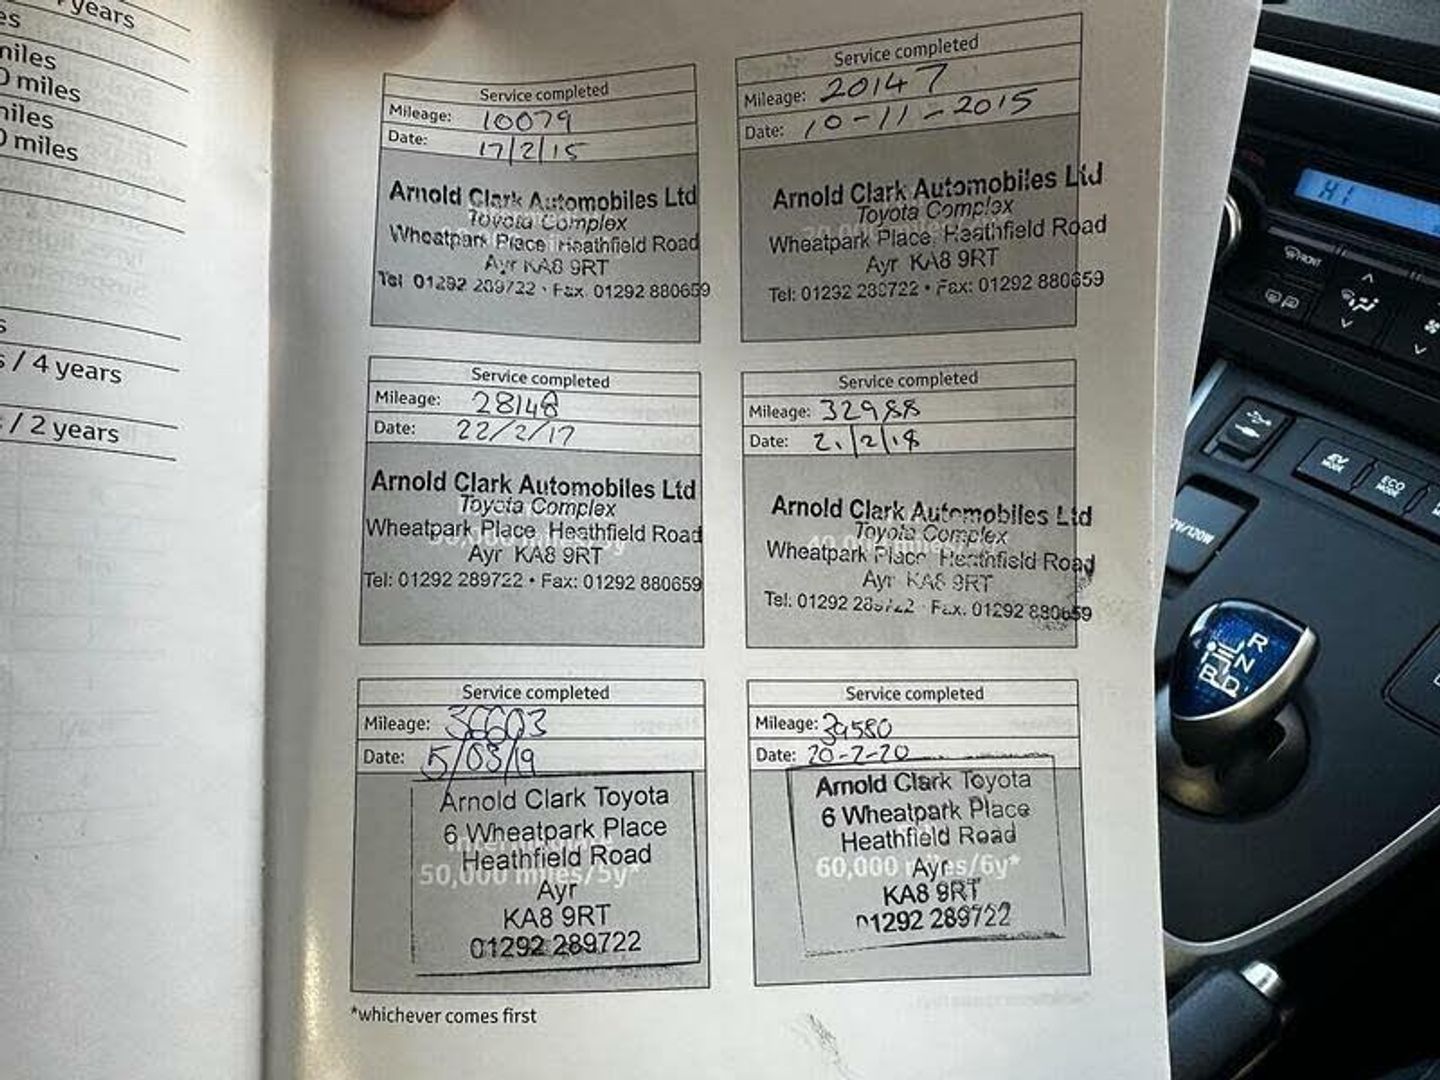 years
es
miles
0 miles
miles
0 miles
s
s / 4 years
/ 2 years
Service completed
Mileage: 10079
Date: 17/2/15
Arnold Clark Automobiles Ltd
Toyota Complex
Wheatpark Place, Heathfield Road
Ayr KA8 9RT
Tel: 01292 289722 • Fax: 01292 880659
Service completed
Mileage: 20147
Date: 10-11-2015
Arnold Clark Automobiles Ltd
Toyota Complex
Wheatpark Place, Heathfield Road
Ayr KA8 9RT
Tel: 01292 289722 • Fax: 01292 880659
Service completed
Mileage: 28148
Date: 22/2/17
Arnold Clark Automobiles Ltd
Toyota Complex
Wheatpark Place, Heathfield Road
Ayr KA8 9RT
Tel: 01292 289722 • Fax: 01292 880659
Service completed
Mileage: 32988
Date: 21/2/18
Arnold Clark Automobiles Ltd
Toyota Complex
Wheatpark Place, Heathfield Road
Ayr KA8 9RT
Tel: 01292 289722 • Fax: 01292 880659
Service completed
Mileage: 36603
Date: 5/03/19
Arnold Clark Toyota
6 Wheatpark Place
Heathfield Road
50,000 miles/5y*
Ayr
KA8 9RT
01292 289722
Service completed
Mileage: 39580
Date: 20-2-20
Arnold Clark Toyota
6 Wheatpark Place
Heathfield Road
60,000 miles/6y*
Ayr
KA8 9RT
01292 289722
*whichever comes first
HI
FRONT
EV
MODE
ECO
MODE
V/120W
R
N
B D